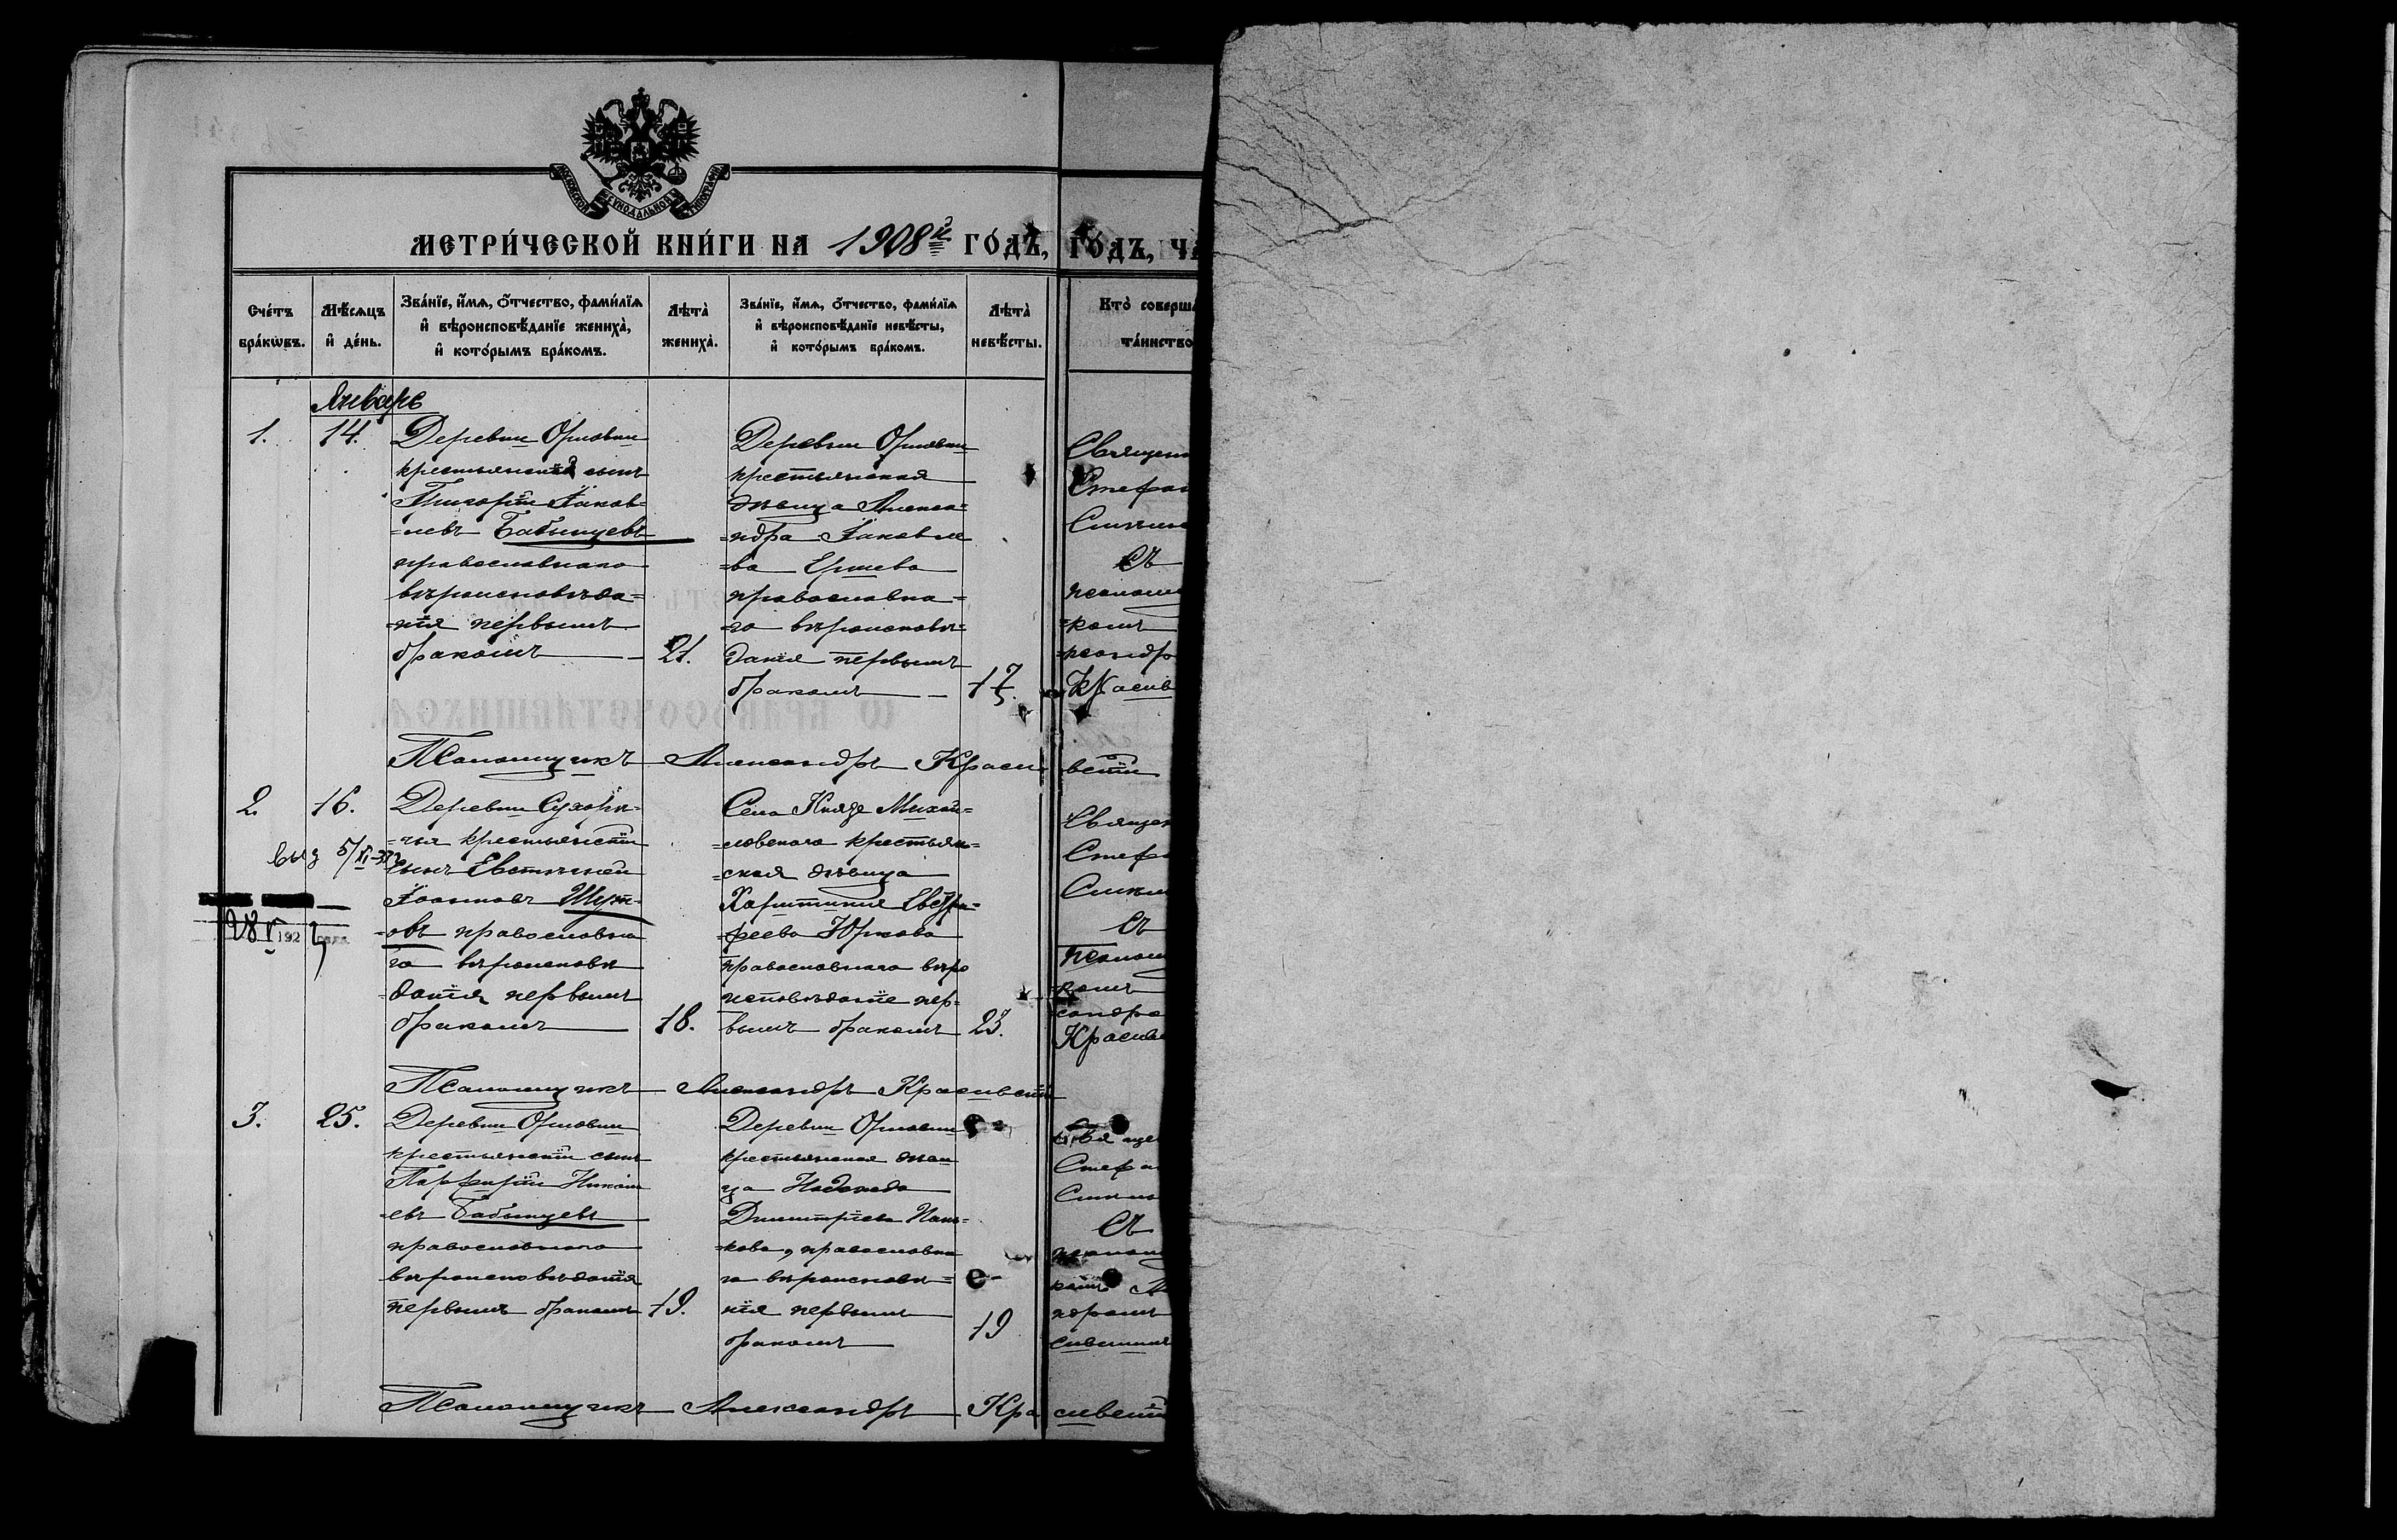 МОСКОВСКОЙ СѴНОДАЛЬНОЙ ТИПОГРАФІИ
МЕТРИ́ЧЕСКОЙ КНИ́ГИ НА 1908й ГО́ДЪ,
ГО́ДЪ, ЧА
Сче́тъ бра́кѡвъ.
Мѣ́сѧцъ и҆ де́нь.
Зва́нїе, и҆́мѧ, ѻ҆́тчество, фами́лїѧ
и҆ вѣроисповѣ́данїе жениха̀,
и҆ кото́рымъ бра́комъ.
Лѣта̀ жениха̀.
Зва́нїе, и҆́мѧ, ѻ҆́тчество, фами́лїѧ
и҆ вѣроисповѣ́данїе невѣ́сты,
и҆ кото́рымъ бра́комъ.
Лѣта̀ невѣ́сты.
Кто̀ соверша
та́инство
Январь
1.
14.
Деревни Орловки
крестьянскій сынъ
Григорій Іаков-
=левъ Бабынцевъ
православнаго
вѣроисповѣда=
=нія первымъ
бракомъ
21.
Деревни Орловки
крестьянская
дѣвица Алекса=
=ндра Іаковле
=ва Ершева
православна=
=го вѣроисповѣ=
данія первымъ
бракомъ
17.
Священ
Стефан
съ
псалом
=комъ
Красив
Псаломщикъ Александръ Красивскій
2.
16.
Деревни
=чья крестьянскій
сынъ Евстигней
Іоанновъ Шут-
=овъ православна
го вѣроисповѣ
=данія первымъ
бракомъ
18.
Села Князе Михай=
=ловскаго крестьян=
=ская дѣвица
Харитинія
=феева Юркова
православнаго вѣро
исповѣданіе пер=
вымъ бракомъ
23.
выд 5/XI-37
28 V 192
Священ
Стеф
съ
псалом
=комъ
сандро
Красив
Псаломщикъ Александръ Красивскій
3.
25.
Деревни Орловки
крестьянскій сынъ
Парфирій Никола
=евъ Бабынцевъ
православнаго
вѣроисповѣданія
первымъ бракомъ
19.
Деревни Орловки
крестьянская дѣви
ца Надежда
Димитріева Пань=
=кова, православна
го вѣроисповѣ=
нія первымъ
бракомъ
19
Свяще
Стефа
съ
псалом
комъ Ал
ндромъ
Псаломщикъ Александръ Красивскій